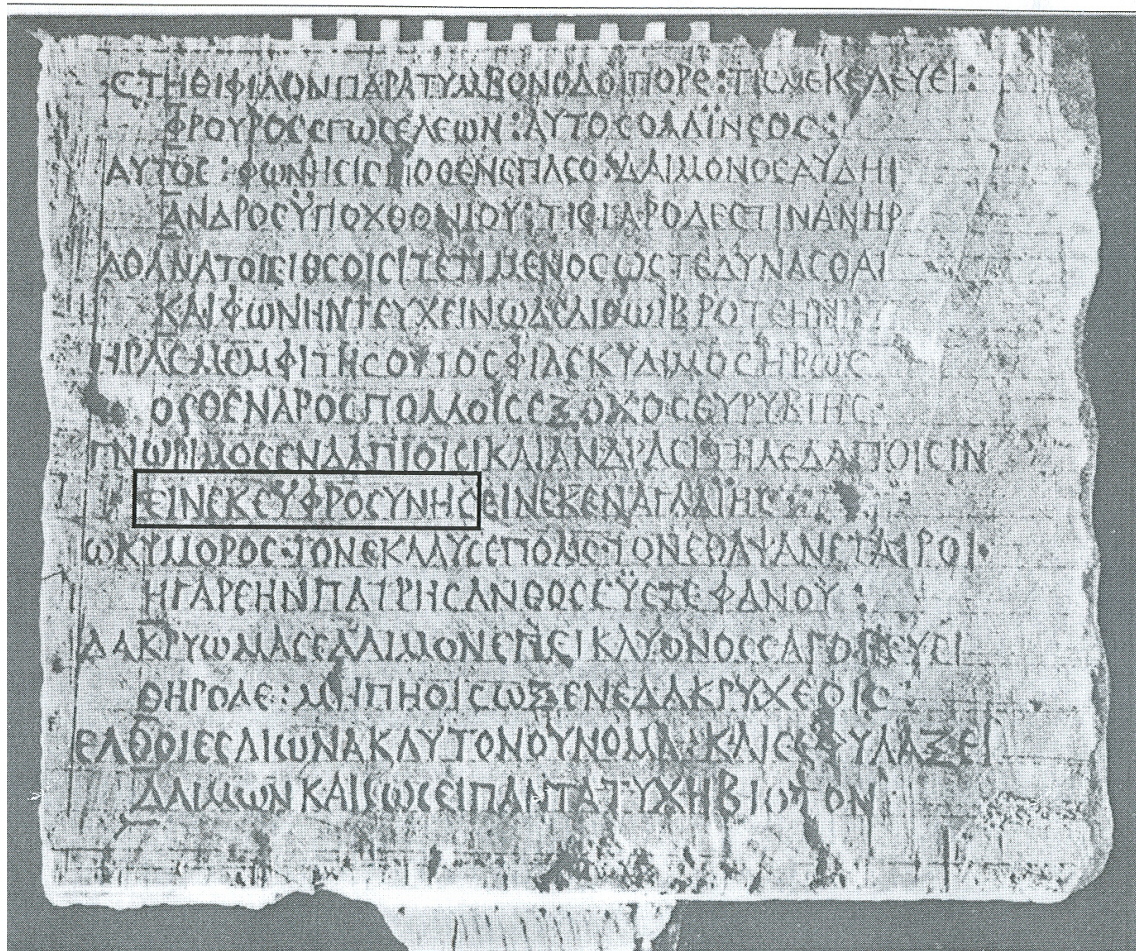 ϹΤΗΘΙΦΙΛΟΝΠΑΡΑΤΥΜΒΟΝΟΔΟΙΠΟΡΕ:ΤΙϹΜΕΚΕΛΕΥΕΙ:
ΦΡΟΥΡΟϹΕΓΩϹΕΛΕΩΝ:ΑΥΤΟϹΟΛΑΪΝΕΟϹ:
ΑΥΤΟϹ:ΦΩΝΗΕΙϹΠΟΘΕΝΕΠΛΕΟ:ΔΑΙΜΟΝΟϹΑΥΔΗΙ
ΑΝΔΡΟϹΫΠΟΧΘΟΝΙΟΥ:ΤΙϹΓΑΡΟΔΕϹΤΙΝΑΝΗΡ
ΑΘΑΝΑΤΟΙϹΙΘΕΟΙϹΙΤΕΤΙΜΕΝΟϹΩϹΤΕΔΥΝΑϹΘΑΙ
ΚΑΙΦΩΝΗΝΤΕΥΧΕΙΝΩΔΕΛΙΘΩΙΒΡΟΤΕΗΝ
ΗΡΑϹΜΕΜΦΙΤΗϹΟΥΤΟϹΦΙΛΕΚΥΔΙΜΟϹΗΡΩϹ
ΟϹΘΕΝΑΡΟϹΠΟΛΛΟΙϹΕΞΟΧΟϹΕΥΡΥΒΙΗϹ
ΓΝΩΡΙΜΟϹΕΝΔΑΠΙΟΙϹΙΚΑΙΑΝΔΡΑϹΙΤΗΛΕΔΑΠΟΙϹΙΝ
ΕΙΝΕΚΕΫΦΡΟϹΥΝΗϹΕΙΝΕΚΕΝΑΓΛΑΪΗϹ
ΩΚΥΜΟΡΟϹ·ΤΟΝΕΚΛΑΥϹΕΠΟΛΙϹ·ΤΟΝΕΘΑΨΑΝΕΤΑΙΡΟΙ·
ΗΓΑΡΕΗΝΠΑΤΡΗϹΑΝΘΟϹΕΫϹΤΕΦΑΝΟΥ
ΔΑΚΡΥΩΜΑϹΕΔΑΙΜΟΝΕΠΕΙΚΛΥΟΝΟϹϹΑΓΟΡΕΥΕΙ
ΘΗΡΟΔΕ:ΜΗΠΗΟΙϹΩΞΕΝΕΔΑΚΡΥΧΕΟΙϹ
ΕΛΘΟΙΕϹΑΙΩΝΑΚΛΥΤΟΝΟΥΝΟΜΑ·ΚΑΙϹΕΦΥΛΑΞΕΙ
ΔΑΙΜΩΝΚΑΙϹΩϹΕΙΠΑΝΤΑΤΥΧΗΒΙΟΤΟΝ